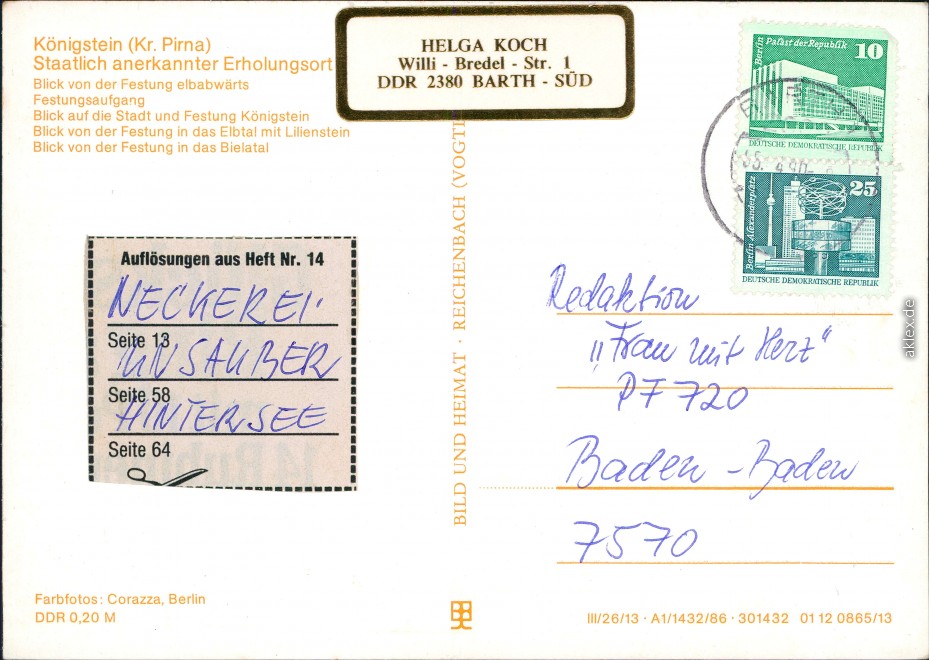 Königstein (Kr. Pirna)
Staatlich anerkannter Erholungsort
Blick von der Festung elbabwärts
Festungsaufgang
Blick auf die Stadt und Festung Königstein
Blick von der Festung in das Elbtal mit Lilienstein
Blick von der Festung in das Bielatal
HELGA KOCH
Willi - Bredel - Str. 1
DDR 2380 BARTH - SÜD
Berlin Palast der Republik
10
DEUTSCHE DEMOKRATISCHE REPUBLIK
Berlin Alexanderplatz
25
DEUTSCHE DEMOKRATISCHE REPUBLIK
Auflösungen aus Heft Nr. 14
NECKEREI
Seite 13
UNSAUBER
Seite 58
HINTERSEE
Seite 64
BILD UND HEIMAT · REICHENBACH (VOGTL
Redaktion
"Frau mit Herz"
PF 720
Baden - Baden
7570
Farbfotos: Corazza, Berlin
DDR 0,20 M
III/26/13 · A1/1432/86 · 301432 01 12 0865/13
aklex.de